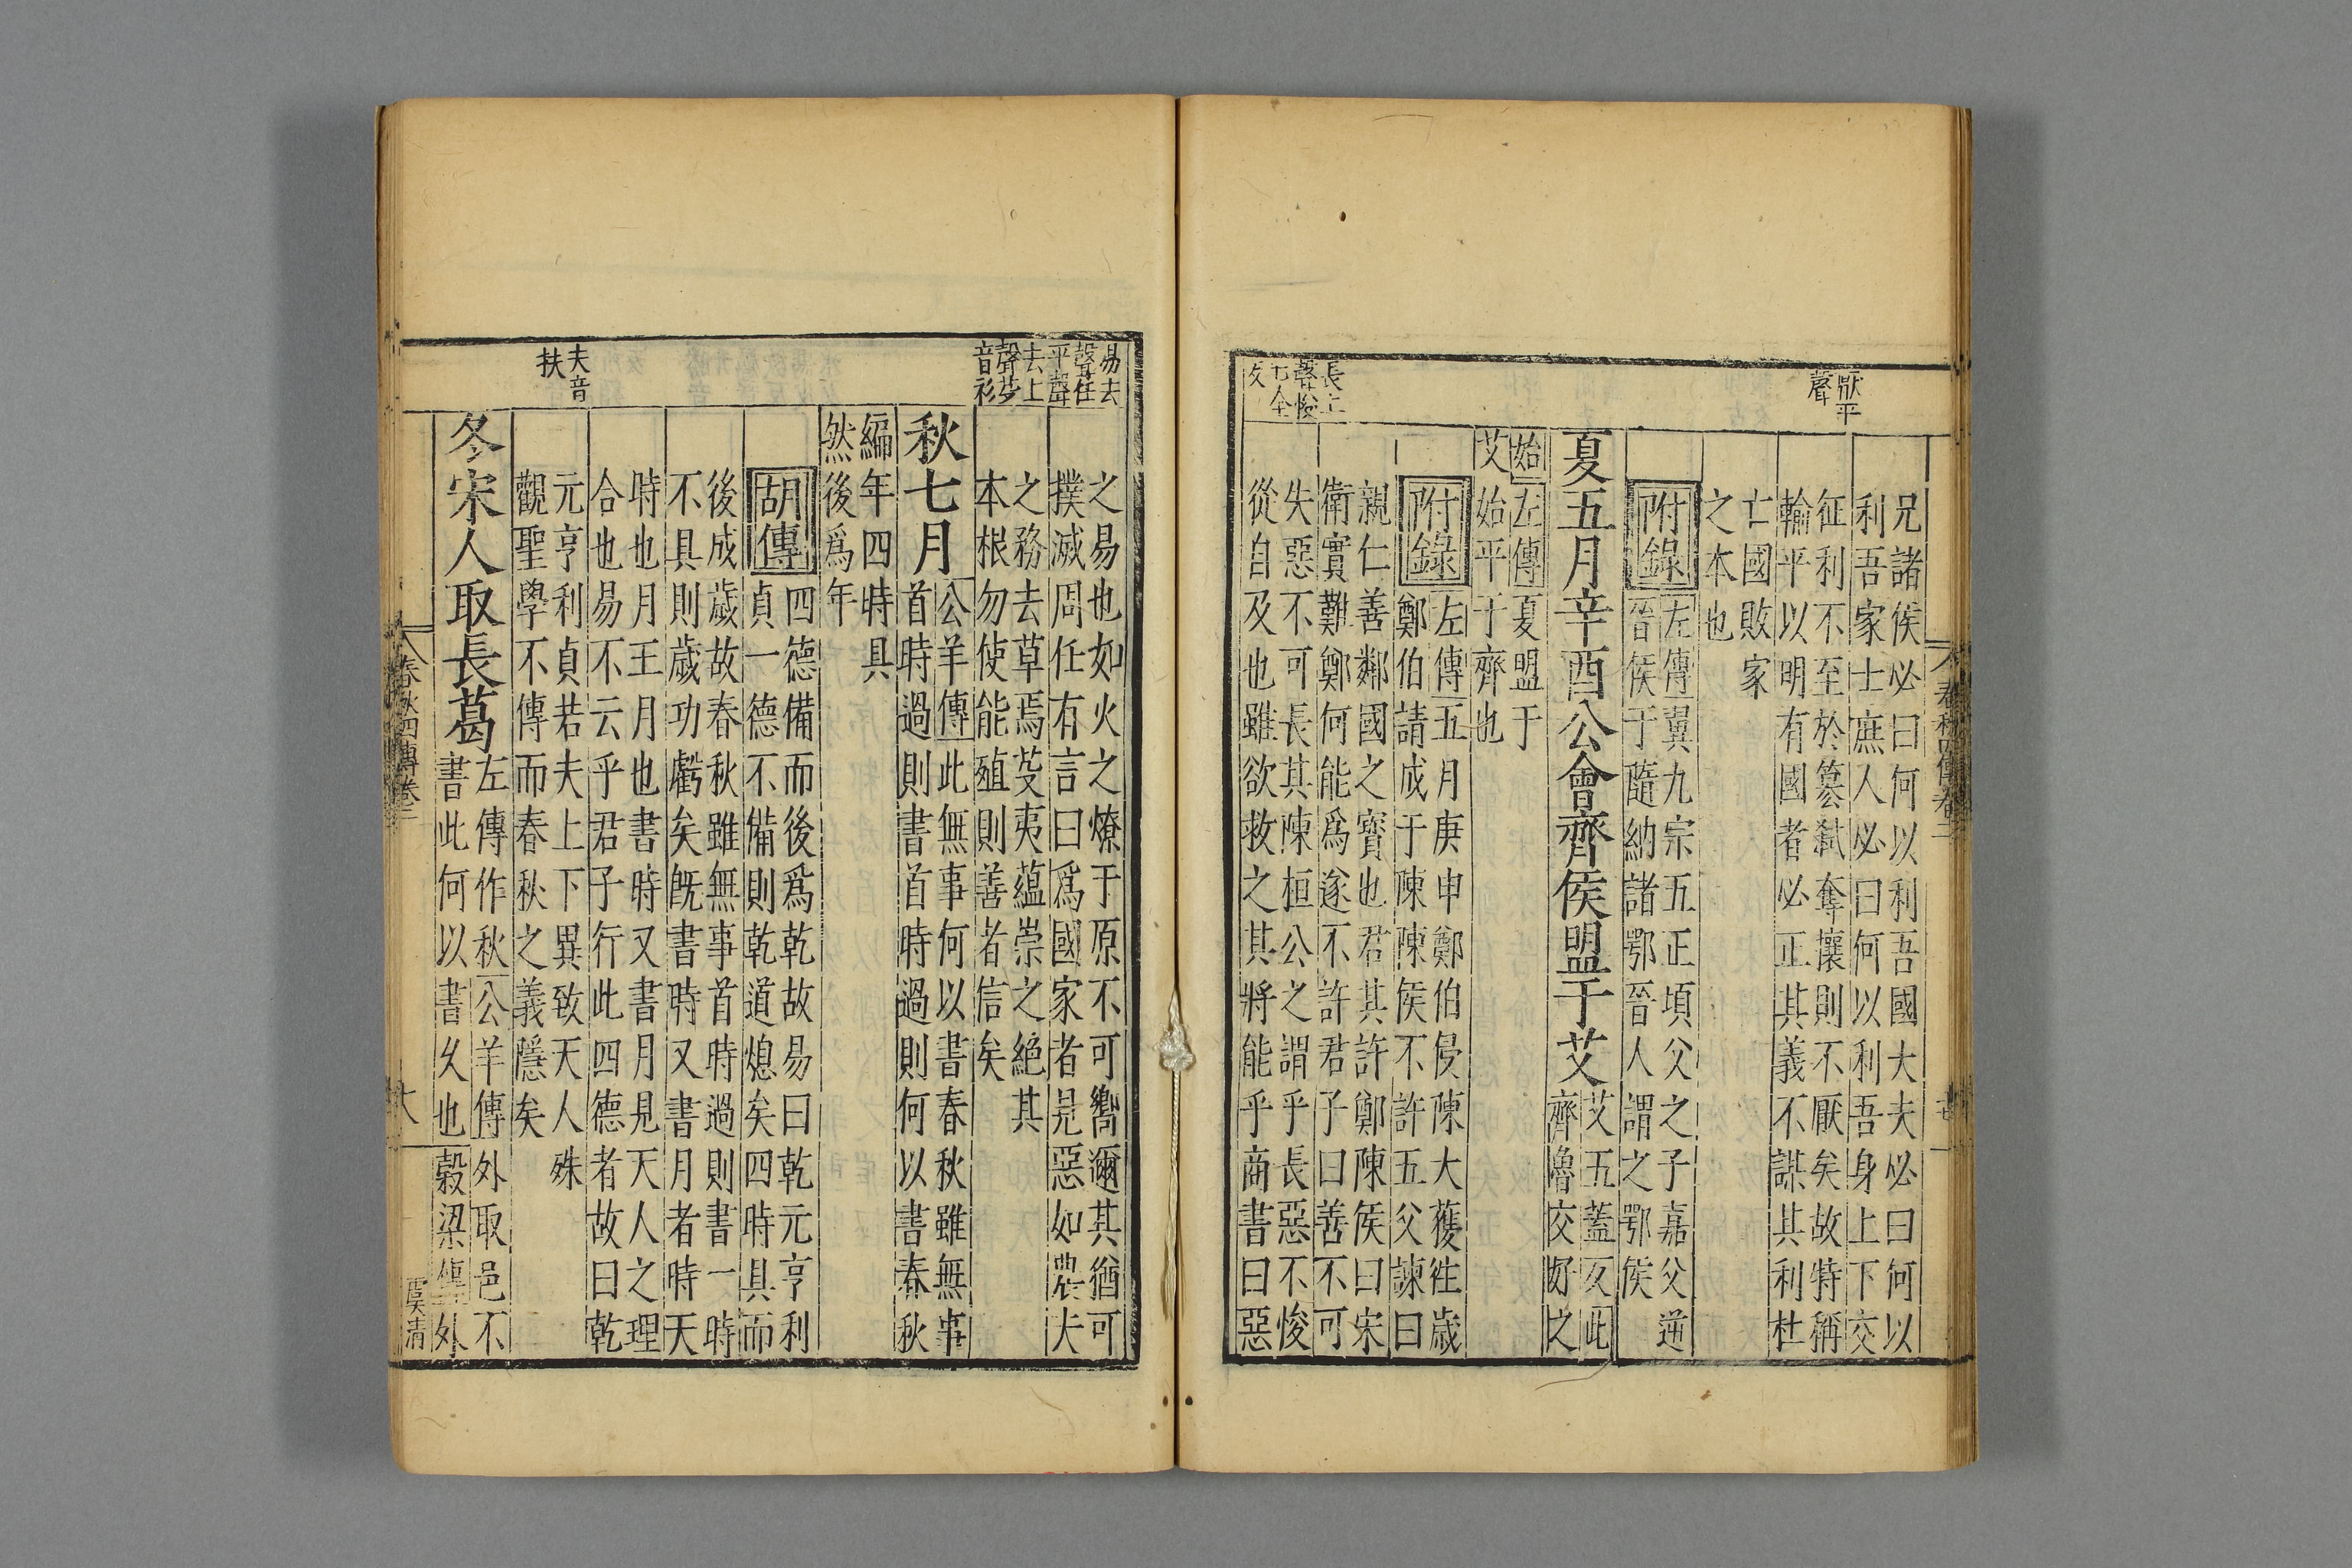 厭平
聲
兄諸侯必曰何以利吾國大夫必曰何以
利吾家士庶人必曰何以利吾身上下交
征利不至於簒弑奪攘則不厭矣故特稱
輸平以明有國者必正其義不謀其利杜
亡國敗家
之本也
附錄
左傳翼九宗五正頃父之子嘉父逆
晉侯于隨納諸鄂晉人謂之鄂侯
夏五月辛酉公會齊侯盟于艾
艾五蓋反此
齊魯交好之
始左傳夏盟于
艾始平于齊也
附錄
左傳五月庚申鄭伯侵陳大獲徃歲
鄭伯請成于陳陳侯不許五父諫曰
長上
聲悛
七全
反
親仁善鄰國之寶也君其許鄭陳侯曰宋
衛實難鄭何能爲遂不許君子曰善不可
失惡不可長其陳桓公之謂乎長惡不悛
從自及也雖欲救之其將能乎商書曰惡
易去
聲任
平聲
去上
聲芟
音衫
之易也如火之燎于原不可嚮邇其猶可
撲滅周任有言曰爲國家者見惡如農夫
之務去草焉芟夷蘊崇之絕其
本根勿使能殖則善者信矣
秋七月
公羊傳此無事何以書春秋雖無事
首時過則書首時過則何以書春秋
編年四時具
然後爲年
胡傳
四德備而後爲乾故易曰乾元亨利
貞一德不備則乾道熄矣四時具而
後成歲故春秋雖無事首時過則書一時
不具則歲功虧矣旣書時又書月者時天
時也月王月也書時又書月見天人之理
合也易不云乎君子行此四德者故曰乾
夫音
扶
元亨利貞若夫上下異致天人殊
觀聖學不傳而春秋之義隱矣
冬宋人取長葛
左傳作秋公羊傳外取邑不
書此何以書久也穀梁傳外
春秋四傳卷二
六
虞清